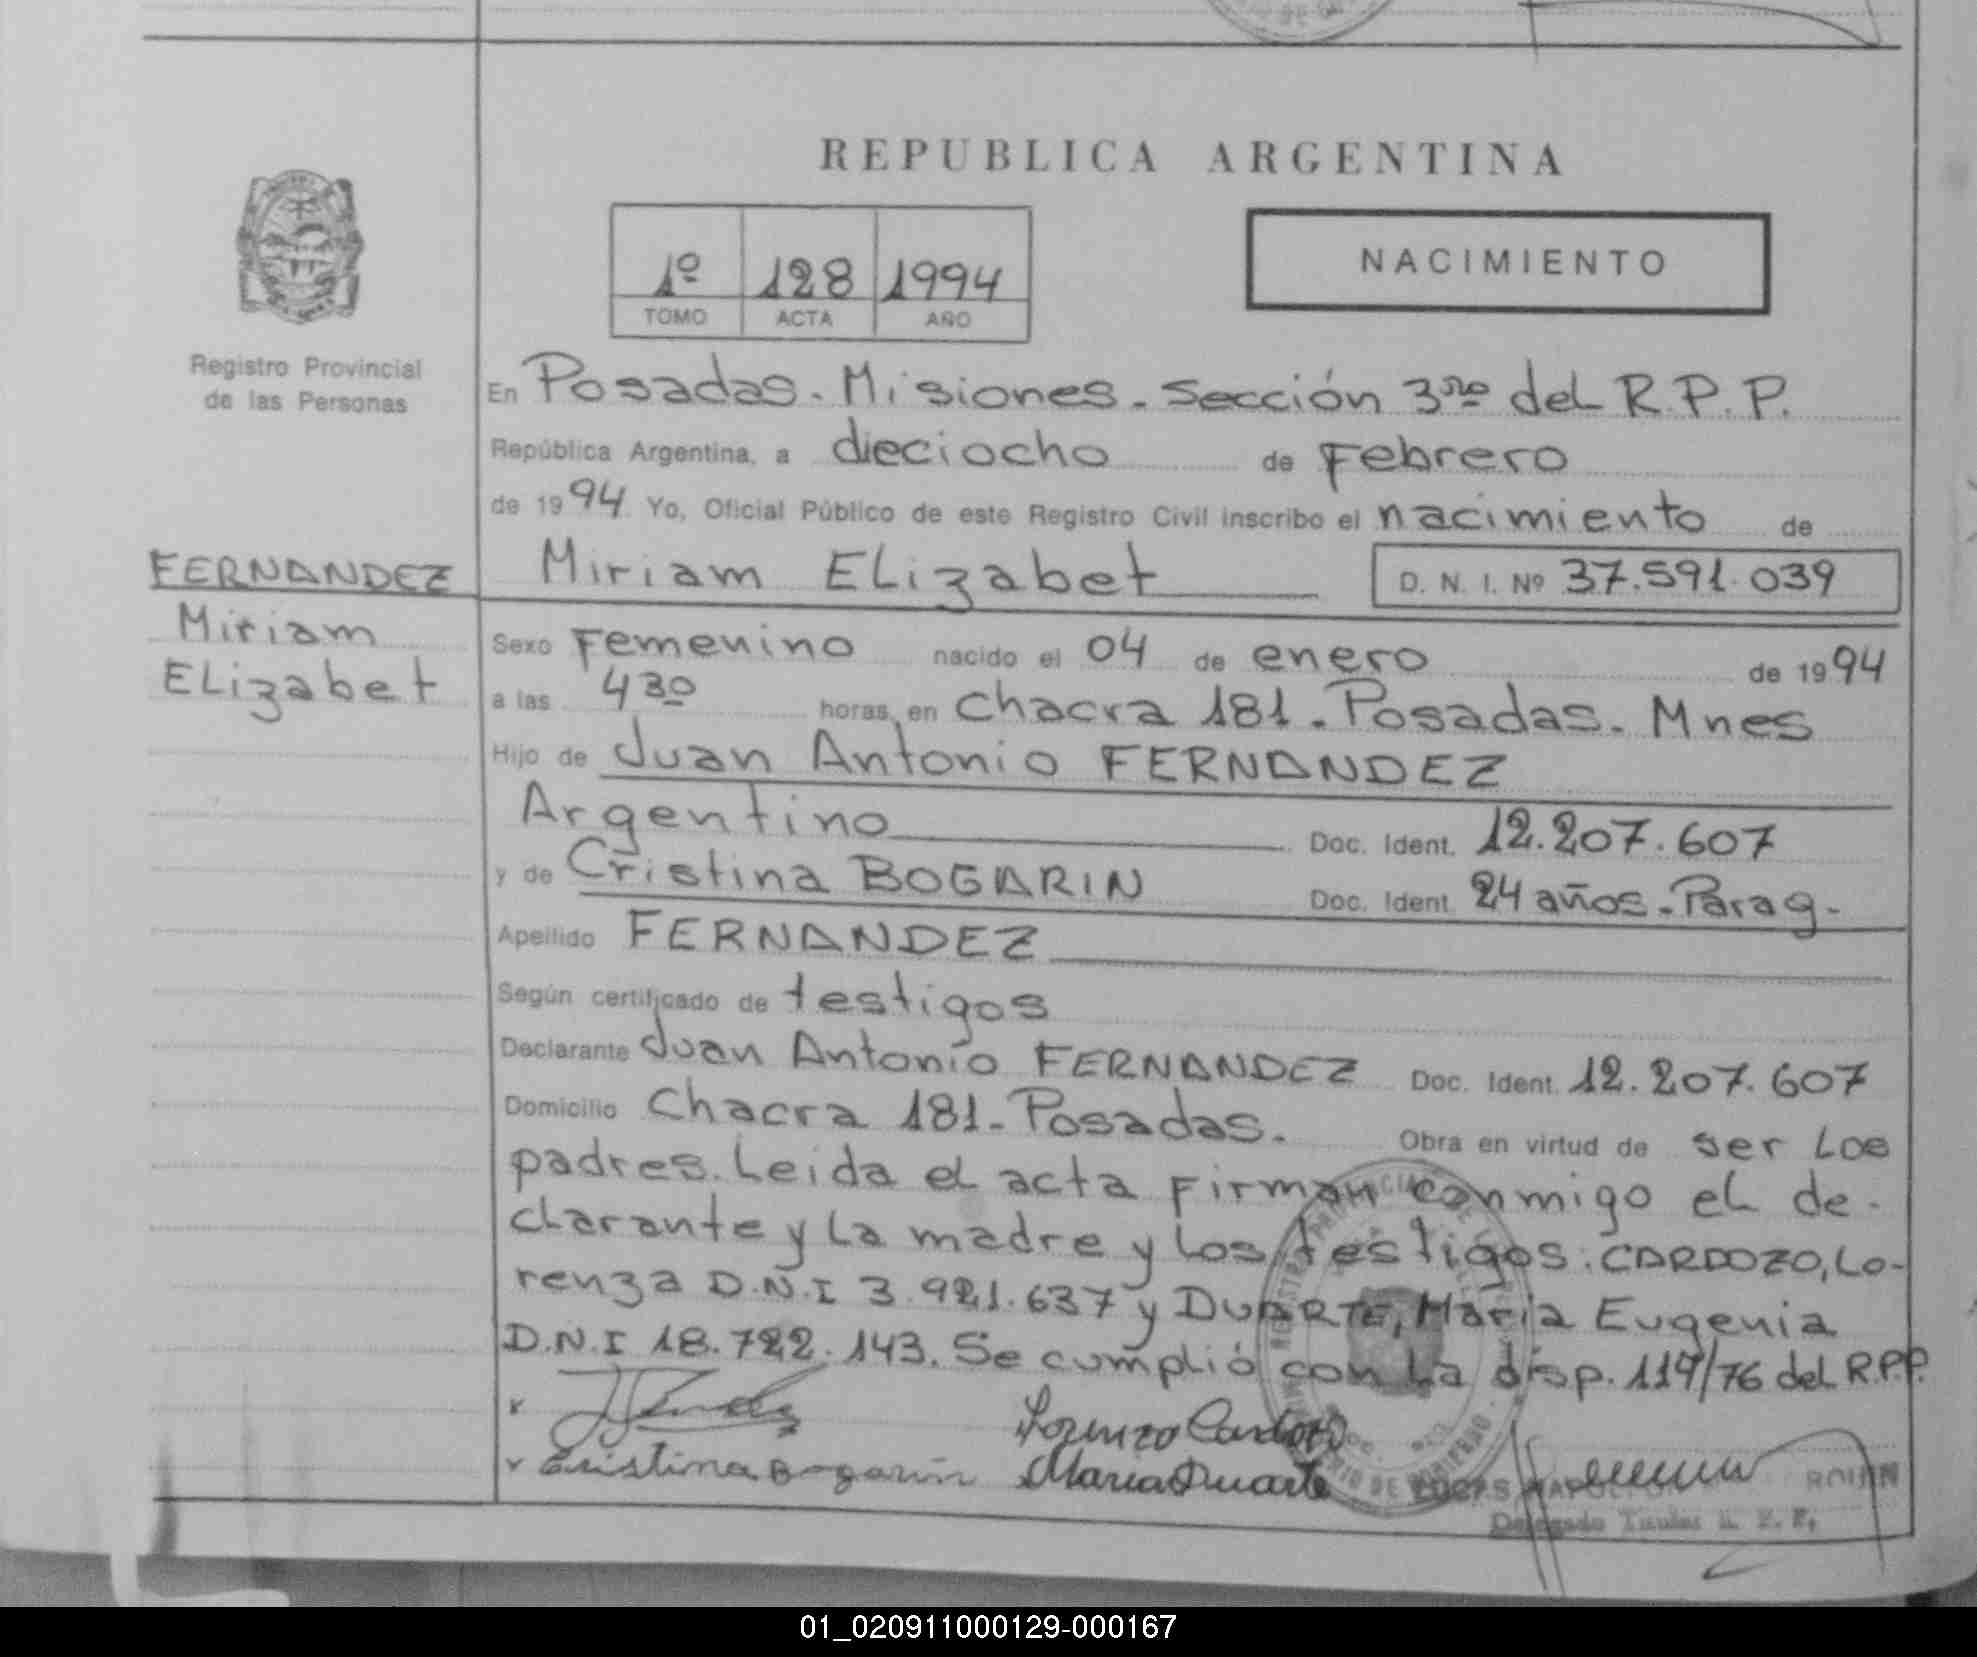 REPUBLICA ARGENTINA
1º 128 1994
TOMO ACTA AÑO
NACIMIENTO
Registro Provincial
de las Personas
En Posadas. Misiones. Sección 3ra del R.P.P.
República Argentina, a dieciocho de Febrero
de 1994 Yo, Oficial Público de este Registro Civil inscribo el nacimiento de
FERNANDEZ
Miriam
Elizabet
Miriam Elizabet D. N. I. Nº 37.591.039
Sexo Femenino nacido el 04 de enero de 1994
a las 4 30 horas, en Chacra 181. Posadas. Mnes
Hijo de Juan Antonio FERNANDEZ
Argentino Doc. Ident. 12.207.607
y de Cristina BOGARIN Doc. Ident. 24 años. Parag.
Apellido FERNANDEZ
Según certificado de testigos
Declarante Juan Antonio FERNANDEZ Doc. Ident. 12.207.607
Domicilio Chacra 181. Posadas. Obra en virtud de ser los
padres. Leida el acta firman conmigo el de-
clarante y la madre y los testigos: CARDOZO, Lo-
renza D.N.I 3.921.637 y DUARTE, María Eugenia
D.N.I 18.722.143. Se cumplió con la disp. 119/76 del R.P.P.
Lorenza Cardozo
Cristina Bogarin Maria Duarte
Delegado Titular R. P. P.
01_020911000129-000167